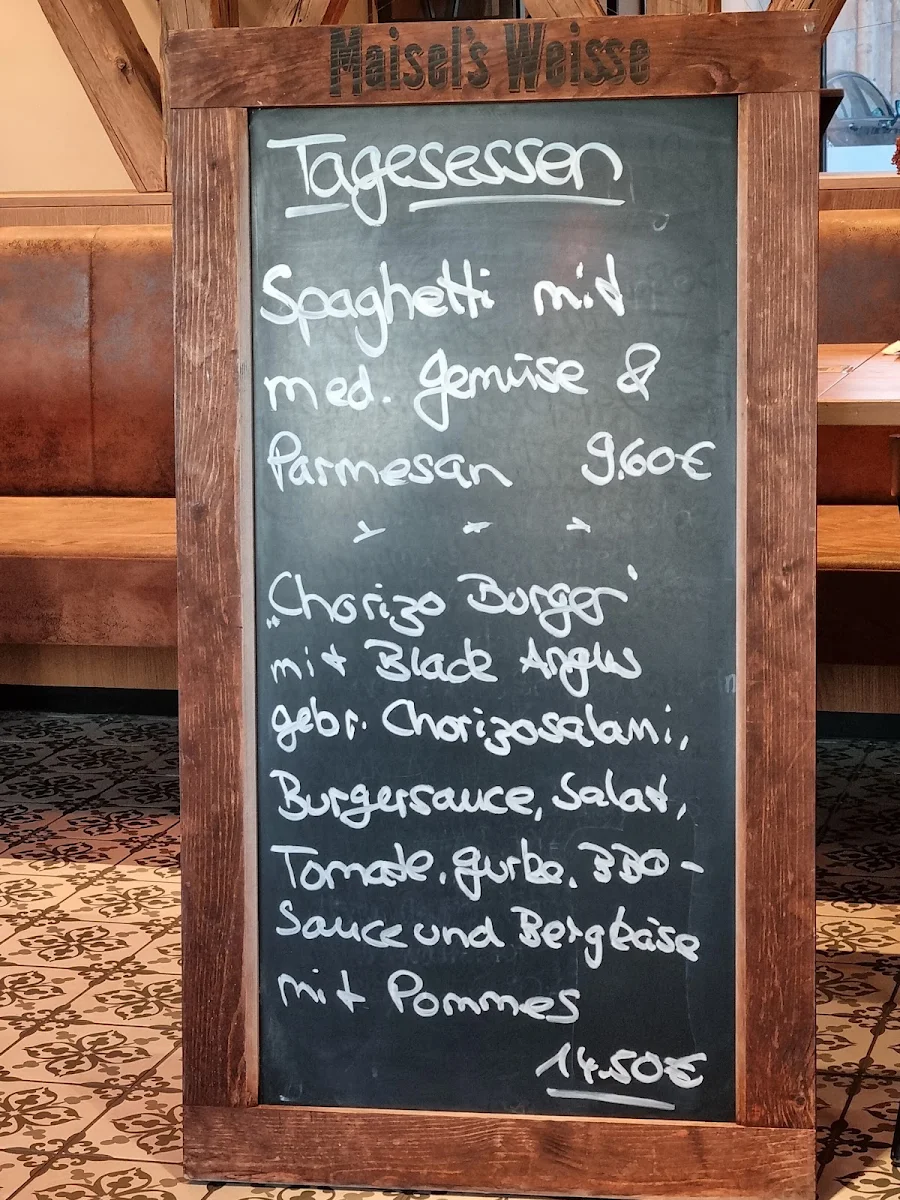 Maisel's Weisse
Tagesessen
Spaghetti mit
med. Gemüse &
Parmesan 9,60€
"Chorizo Burger"
mit Black Angus
gebr. Chorizosalami,
Burgersauce, Salat,
Tomate, Gurke, BBQ-
Sauce und Bergkäse
mit Pommes
14,50€